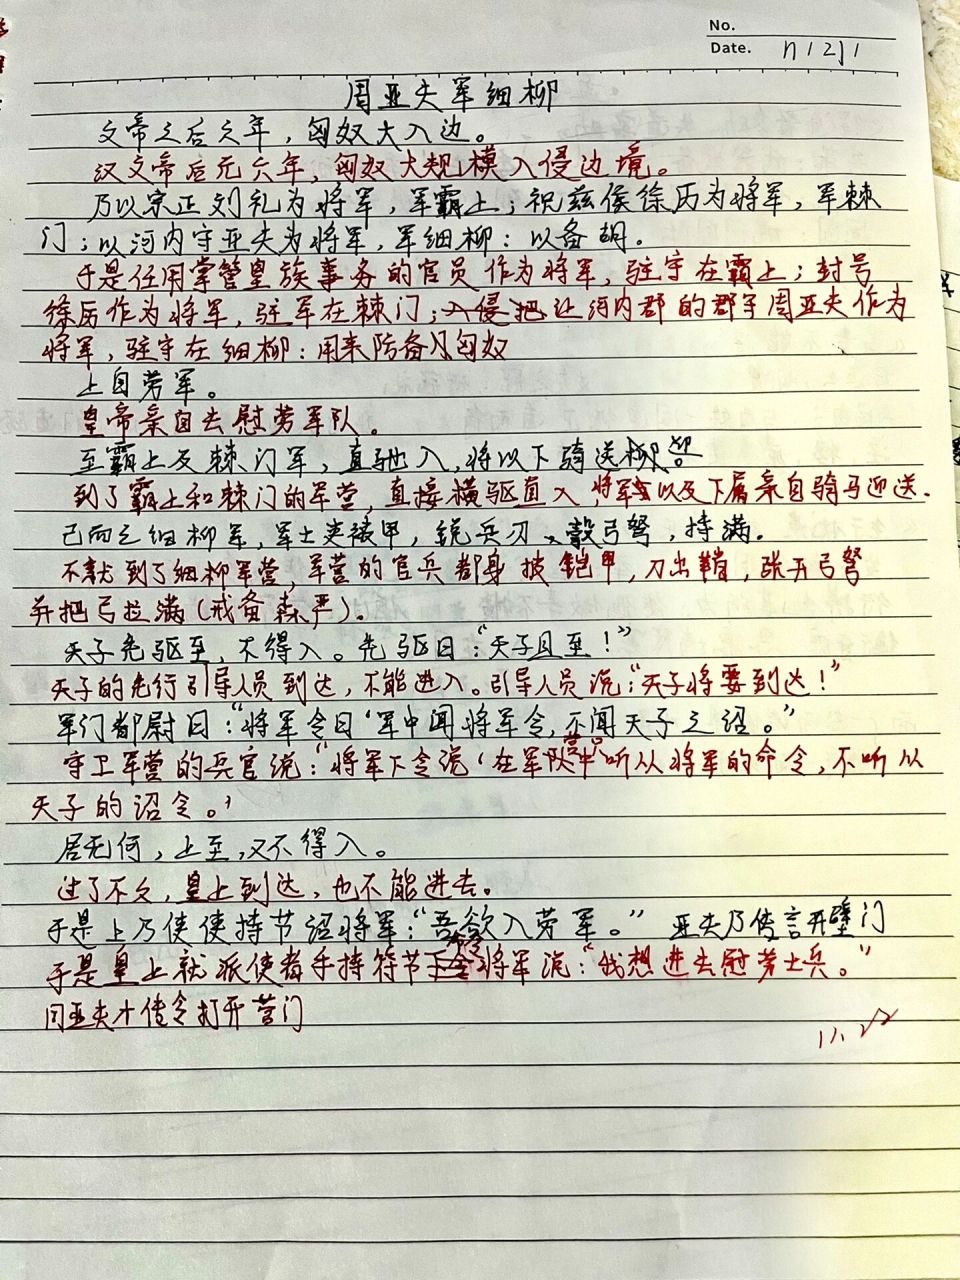 No.
Date. 11 2 1
周亚夫军细柳
文帝之后之年，匈奴大入边。
汉文帝后元六年，匈奴大规模入侵边境。
乃以宗正刘礼为将军，军霸上；祝兹侯徐厉为将军，军棘
门；以河内守亚夫为将军，军细柳：以备胡。
于是任用掌管皇族事务的官员作为将军，驻守在霸上；封号
徐厉作为将军，驻军在棘门；入侵把让河内郡的郡守周亚夫作为
将军，驻守在细柳：用来防备匈奴
上自劳军。
皇帝亲自去慰劳军队。
至霸上及棘门军，直驰入，将以下骑送迎
到了霸上和棘门的军营，直接横驱直入，将军以及下属亲自骑马迎送.
已而之细柳军，军士吏被甲，锐兵刃，彀弓弩，持满.
不就到了细柳军营，军营的官兵都身披铠甲，刀出鞘，张开弓弩
并把弓拉满(戒备森严)。
天子先驱至，不得入。先驱曰：“天子且至！”
天子的先行引导人员到达，不能进入。引导人员说：“天子将要到达！”
军门都尉曰：“将军令曰‘军中闻将军令，不闻天子之诏。”
守卫军营的兵官说：“将军下令说‘在军营中听从将军的命令，不听从
天子的诏令。’
居无何，上至，又不得入。
过了不久，皇上到达，也不能进去。
于是上乃使使持节诏将军：“吾欲入劳军。” 亚夫乃传言开壁门
于是皇上就派使者手持符节将军说：“我想进去慰劳士兵。”
周亚夫才传令打开营门
11.22